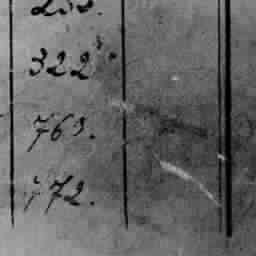 322
763.
772.